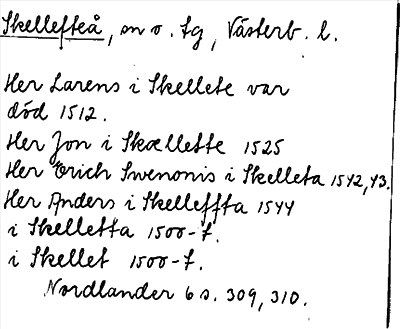 Skellefteå, sn o. tg, Västerb. l.
Her Larens i Skellete var
död 1512.
Her Jon i Skællette 1525
Her Erich Swenonis i Skelleta 1542,43.
Her Anders i Skelleffta 1544
i Skelletta 1500-t.
i Skellet 1500-t.
Nordlander 6 s. 309, 310.